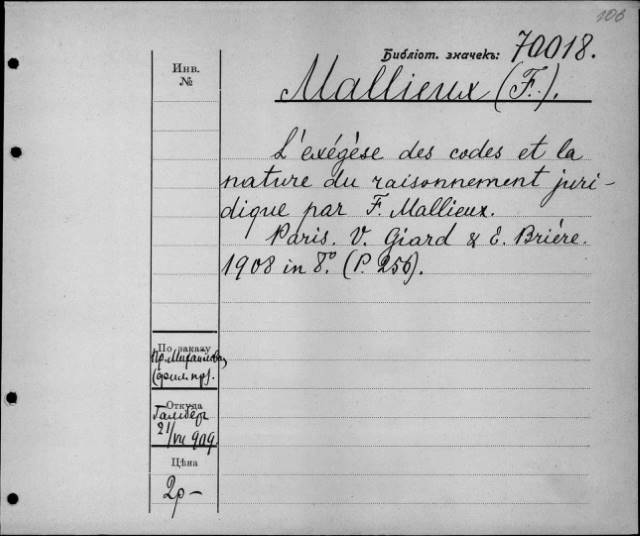 106
Библіот. значекъ: 70018.
Инв.
№
Mallieux (F.).
L'exégèse des codes et la
nature du raisonnement juri-
dique par F. Mallieux.
Paris. V. Giard & E. Brière.
1908 in 8.º (P. 256).
По заказу
Пр. Михайлова,
(фил. пр).
Откуда
21/VII 909.
Цѣна
2р-